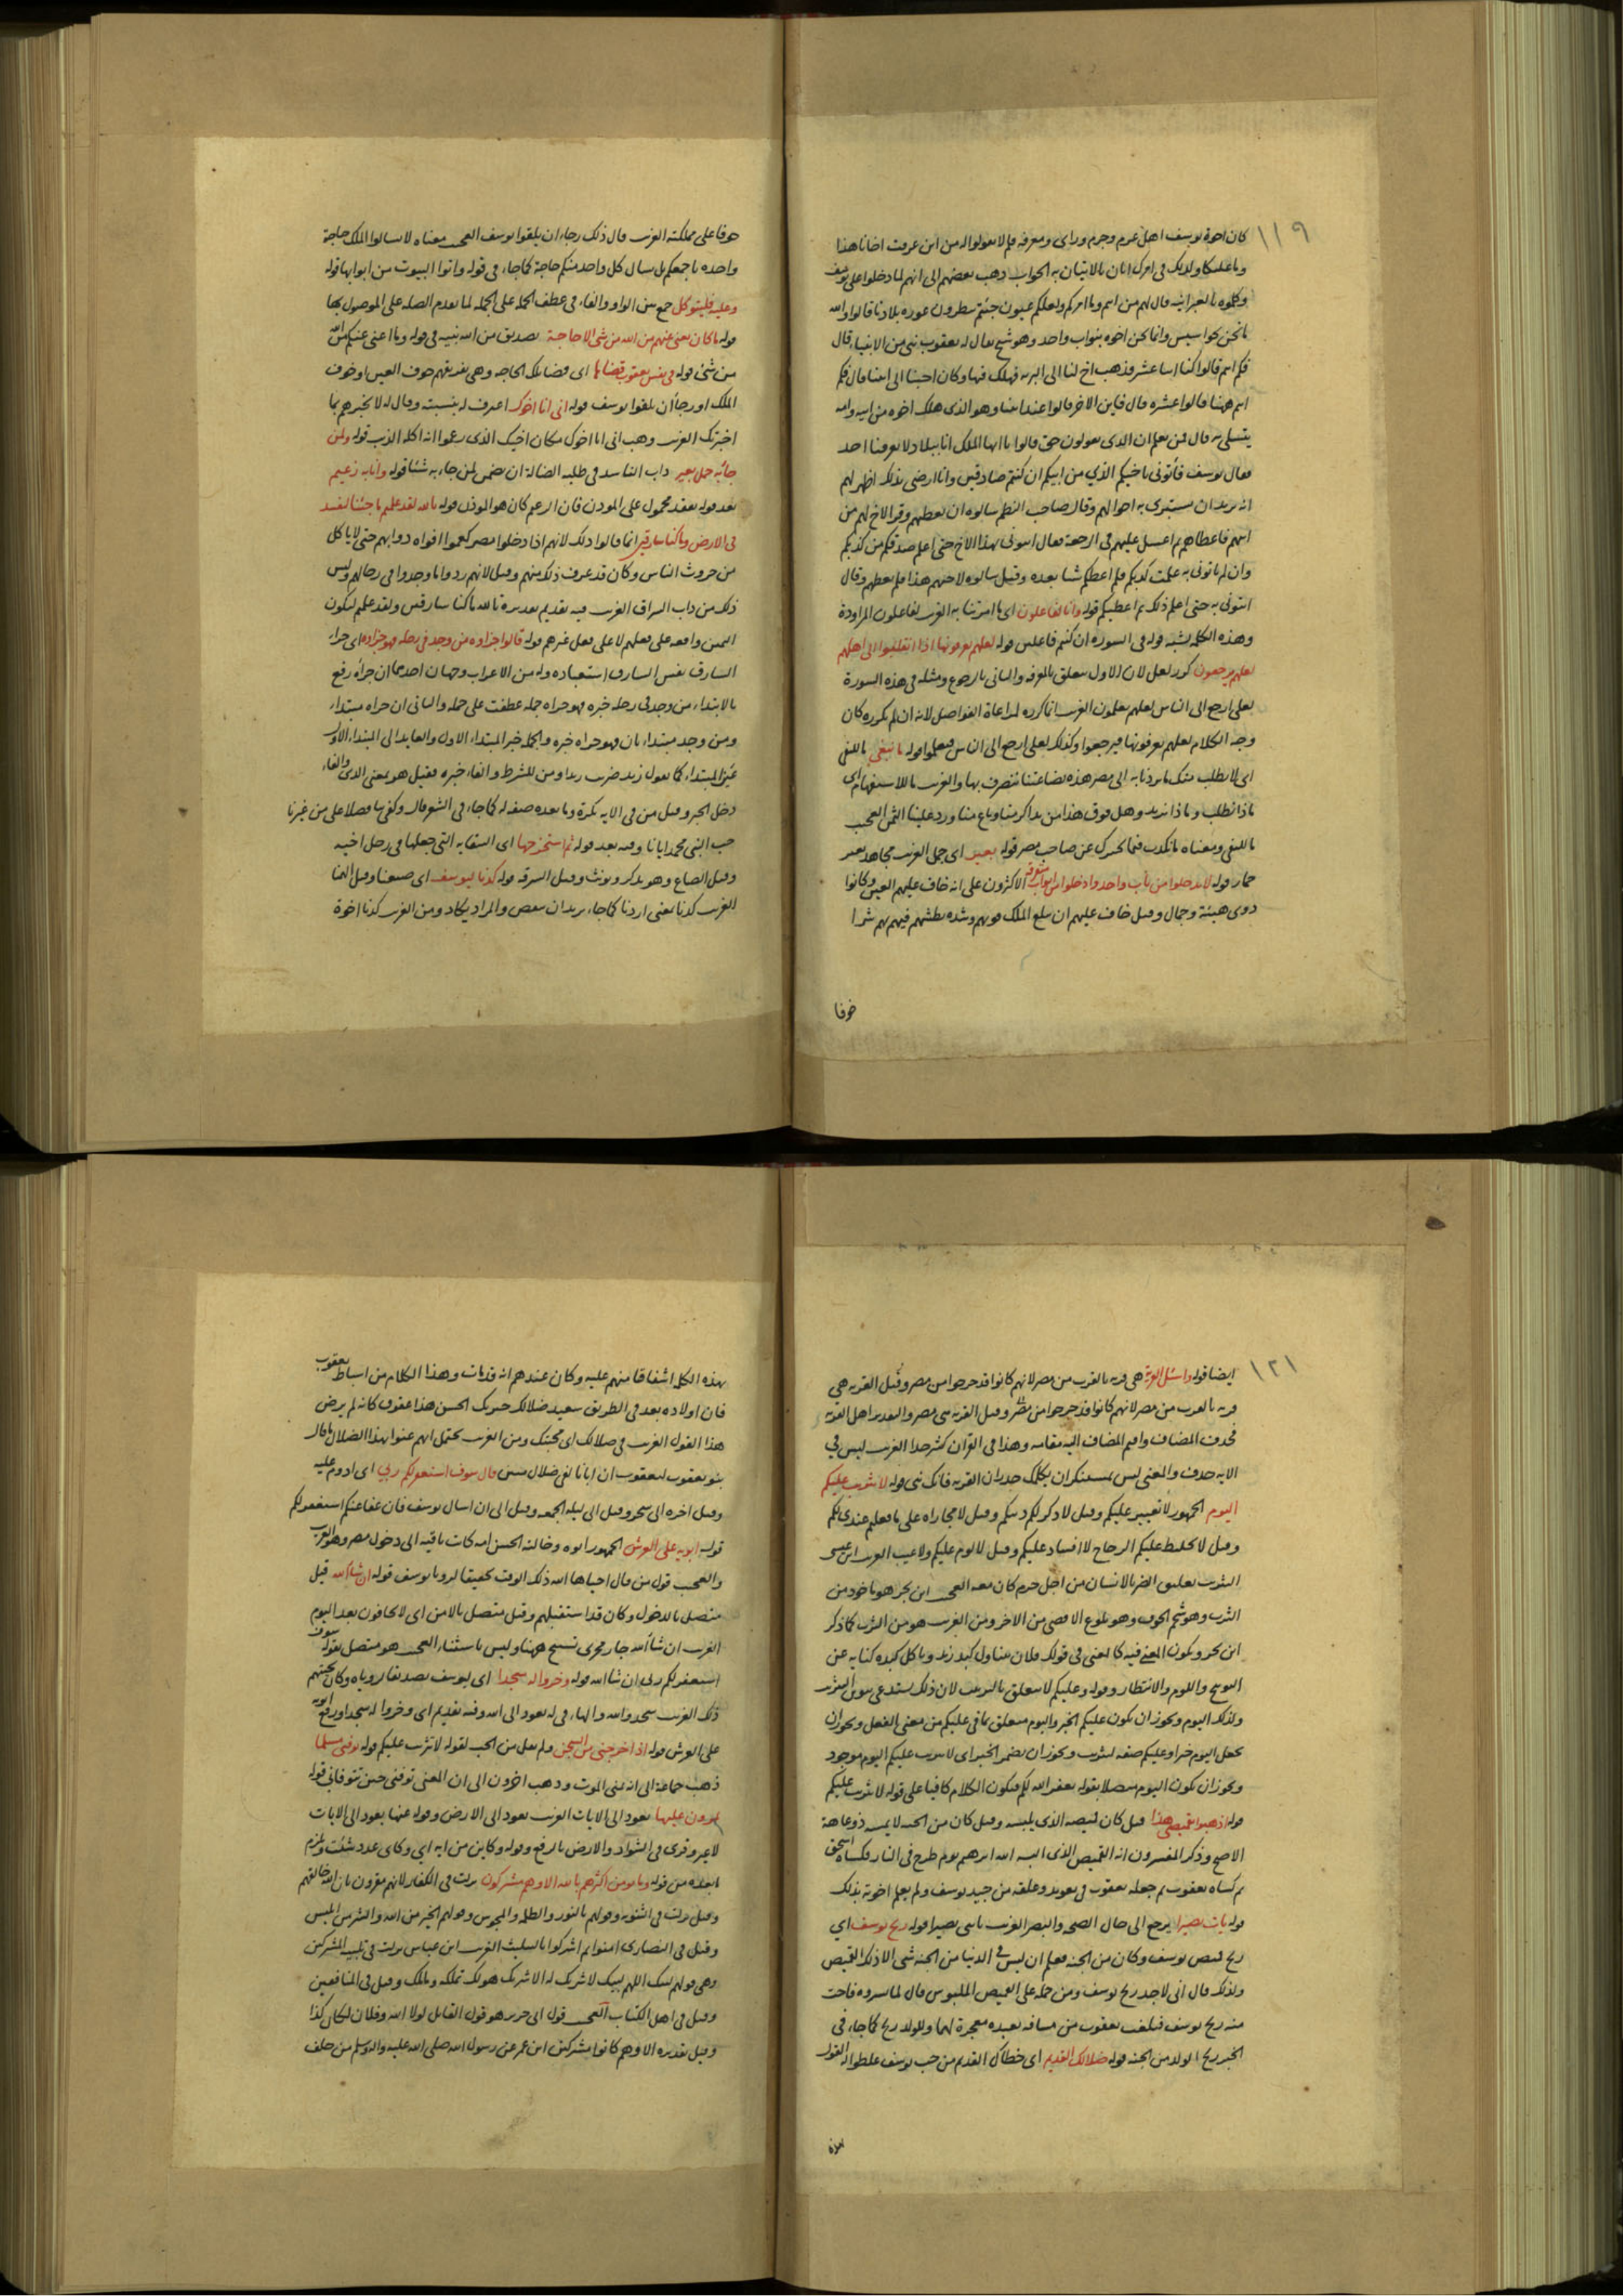 ١١٩
كان اخوة يوسف اهل عزم وحزم وراى ومعرفة فلم لا يقولوا له من اين عرفت اخانا هذا
وما علمك ولديك فى امرك اتان بالاتيان به الجواب ذهب بعضهم الى انهم لما دخلوا على يوسف
وكلموه بالعبرانيه قال لهم من انتم وما امركم ولعلكم عيون جئتم تنظرون عوره بلادنا قالوا والله
ما نحن بجواسيس وانما نحن اخوه بنواب واحد وهو شيخ يقال له يعقوب نبى من الانبياء قال
فكم انتم قالوا كنا اثنا عشر فذهب اخ لنا الى البريه فهلك فيها وكان احبنا الى ابينا قال فكم
انتم ههنا قالوا عشره قال فاين الاخر قالوا عند ابينا وهو الذى هلك اخوه من ابيه وامه
يتسلى به قال فمن يعلم ان الذى تقولون حق قالوا يا ايها الملك انا ببلاد لا يعرفنا احد
فقال يوسف فأتونى باخيكم الذي من ابيكم ان كنتم صادقين وانا ارضى بذلك اظهر لهم
انه يريد ان يستبرى به احوالهم وقال صاحب النظم سالوه ان يعطيهم وقر الاخ لهم من
ابيهم فاعطاهم ثم اعتل عليهم فى الرجعة فقال ايتونى بهذا الاخ حتى اعلم صدقكم من كذبكم
وان لم تاتونى به علمت كذبكم فلم اعطكم شيا بعده وقيل سالوه لاخيهم هذا فلم يعطهم وقال
ايتونى به حتى اعلم ذلك ثم اعطيكم قوله وانا لفاعلون اى ما امرتنا به الغريب لفاعلون المراودة
وهذه الكلمه تشبه قوله فى السوره ان كنتم فاعلين قوله لعلهم يعرفونها اذا انقلبوا الى اهلهم
لعلهم يرجعون كرر لعل لان الاول يتعلق بالمعرفه والثانى بالرجوع ومثله فى هذه السورة
لعلى ارجع الى الناس لعلهم يعلمون الغريب انما كرره لمراعاة الفواصل لانه ان لم يكرره كان
وجه الكلام لعلهم يعرفونها فيرجعوا وكذلك لعلى ارجع الى الناس فيعلموا قوله ما نبغى ما للنفى
اى لا نطلب منك ما يردنا به الى مصر هذه بضاعتنا نتصرف بها والغريب ما للاستفهام اى
ماذا نطلب وماذا نريد وهل فوق هذا من يد اكرمنا وباع منا ورد علينا الثمن العجب
ما للنفى ومعناه ما نكذب فيما نخبرك عن صاحب مصر قوله بعير اى جمل الغريب مجاهد بعير
حمار قوله لا تدخلوا من باب واحد وادخلوا من ابواب متفرقه الاكثرون على انه خاف عليهم العين وكانوا
ذوى هيئة وجمال وقيل خاف عليهم ان يبلغ الملك قوتهم وشده بطشهم فيهم بهم شرا
خوفا
خوفا على مملكته الغريب قال ذلك رجاء ان يلقوا يوسف العجب معناه لا تسالوا الملك حاجة
واحده باجمعكم بل يسال كل واحد منكم حاجة كما جاء فى قوله واتوا البيوت من ابوابها قوله
وعليه فليتوكل جمع بين الواو والفاء فى عطف الجمله على الجمله لما تقدم الصله على الموصول بها
قوله ما كان يغنى عنهم من الله من شى الا حاجة تصديق من الله نبيه فى قوله وما اغنى عنكم من الله
من شئ قوله فى نفس يعقوب قضاها اى قضا تلك الحاجه وهى تفريقهم خوف العين او خوف
الملك او رجا ان يلقوا يوسف قوله انى انا اخوك اعرف له بنسبته وقال له لا تخبرهم بما
اخبرتك الغريب وهب انى انا اخوك مكان اخيك الذى زعموا انه اكله الذيب قوله ولمن
جاء به حمل بعير داب الناشد فى طلبه الضالة ان يضمن لمن جاء به شئا قوله وانا به زعيم
بعد قوله نفقد محمول على الموذن فان الزعيم كان هو الموذن قوله تالله لقد علمتم ما جئنا لنفسد
فى الارض وما كنا سارقين انما قالوا ذلك لانهم اذا دخلوا مصر كعموا افواه دوابهم حتى لا ياكل
من حروث الناس وكان قد عرف ذلك منهم وقيل لانهم ردوا ما وجدوا فى رحالهم وليس
ذلك من داب السراق الغريب فيه تقديم تقديره تالله ما كنا سارقين ولقد علمتم ليكون
اليمين واقعه على فعلهم لا على فعل غيرهم قوله قالوا جزاوه من وجد فى رحله فهو جزاوه اى جزاء
السارق نفس السارق استعباده وله من الاعراب وجهان احدهما ان جزاه رفع
بالابتداء من وجد فى رحله خبره فهو جزاه جمله عطفت على جمله والثانى ان جزاه مبتداء
ومن وجد مبتداء ثان فهو جزاه خبره والجمله خبر المبتداء الاول والعايد الى المبتداء الاول
عين المبتداء كما تقول زيد ضرب زيدا ومن للشرط والفاء خبره فقيل هو بمعنى الذى والفاء
دخل الخبر وقيل من فى الايه نكرة وما بعده صفه له كما جاء فى الشعر قال وكفى بنا فضلا على من غيرنا
حب النبى محمد ايانا وفيه بعد قوله ثم استخرجها اى السقايه التى جعلها فى رحل اخيه
وقيل الصاع وهو يذكر ويونث وقيل السرقه قوله كدنا ليوسف اى صنعنا وقيل الهمنا
الغريب كدنا بمعنى اردنا كما جاء يريد ان ينقض والمراد يكاد ومن الغريب كدنا اخوة
١٢١
ايضا قوله واسئل القرية هى قريه بالقرب من مصر لانهم كانوا قد خرجوا من مصر وقيل القريه هى
قريه بالقرب من مصر لانهم كانوا قد خرجوا من مصر وقيل القريه هى مصر والتقدير اهل القريه
فحذف المضاف واقيم المضاف اليه مقامه وهذا فى القرآن كثير جدا الغريب ليس فى
الايه حذف والمعنى ليس بمستنكر ان يكلمك جدران القريه فانك نبى قوله لا تثريب عليكم
اليوم الجمهور لا تعيير عليكم وقيل لا ذكر لكم ذنبكم وقيل لا مجازاه على ما فعلتم عندى لكم
وقيل لا تخليط عليكم الزجاج لا افساد عليكم وقيل لا لوم عليكم ولا عيب الغريب ابن عيسى
التثريب تعليق الضر بالانسان من اجل جرم كان منه العجب ابن بحر هو ماخوذ من
الثرب وهو شحم الجوف وهو بلوغ الاقصى من الاخر ومن الغريب هو من الثرب كما ذكر
ابن بحر ويكون المعنى فيه كالمعنى فى قولك فلان يتناول كبد زيد وياكل كبده كنايه عن
التوبيخ واللوم والانتظار وقوله وعليكم لا يتعلق بالتثريب لان ذلك يستدعى تنوين التثريب
ولذلك اليوم ويجوز ان يكون عليكم الخبر واليوم متعلق بما فى عليكم من معنى الفعل ويجوز ان
تجعل اليوم خبرا وعليكم صفه لتثريب ويجوز ان تضمر الخبر اى لا تثريب عليكم اليوم موجود
ويجوز ان يكون اليوم متصلا بقوله يغفر الله لكم فيكون الكلام كافيا على قوله لا تثريب عليكم
قوله اذهبوا بقميصى هذا قيل كان قميصه الذى يلبسه وقيل كان من الجنه لا يمسه ذو عاهة
الا صح وذكر المفسرون انه القميص الذى البسه الله ابرهيم يوم طرح فى النار فكساه اسحق
ثم كساه يعقوب ثم جعله يعقوب فى تعويذ وعلقه من جيد يوسف ولم يعلم اخوته بذلك
قوله يات بصيرا يرجع الى حال الصحه والبصر الغريب ياتنى بصيرا قوله ريح يوسف اى
ريح قميص يوسف وكان من الجنه فعلم ان ليس فى الدنيا من الجنه شى الا ذلك القميص
ولذلك قال انى لاجد ريح يوسف ومن حمله على القميص الملبوس قال لما نشروه فاحت
منه ريح يوسف فبلغت يعقوب من مسافه بعيده معجزة لهما وللولد ريح كما جاء فى
الخبر ريح الولد من الجنه قوله ضلالك القديم اى خطاك القديم من حب يوسف غلظوا له القول
بهذه الكلمه اشفاقا منهم عليه وكان عندهم انه قد مات وهذا الكلام من اسباط يعقوب
فان اولاده بعد فى الطريق سعيد ضلالك حيرتك الحسن هذا عقوق كانه لم يرض
هذا القول الغريب فى ضلالك اى محبتك ومن الغريب يحتمل انهم عنوا بهذا الضلال ما قال
بنو يعقوب ليعقوب ان ابانا لفى ضلال مبين قال سوف استغفر لكم ربى اى ادوم عليه
وقيل اخره الى سحر وقيل الى ليله الجمعه وقيل الى ان اسال يوسف فان عفا عنكم استغفر لكم
قوله ابويه على العرش الجمهور ابوه وخالته الحسن امه كانت باقيه الى دخول مصر وهو الغريب
والعجب قول من قال احياها الله ذلك الوقت تحقيقا لرويا يوسف قوله ان شاء الله قيل
متصل بالدخول وكان قد استقبلهم وقيل متصل بالامن اى لا تخافون بعد اليوم
الغريب ان شاء الله جار مجرى تسبيح ههنا وليس باستثناء العجب هو متصل بقوله سوف
استغفر لكم ربى ان شاء الله قوله وخروا له سجدا اى ليوسف تصديقا روياه وكان تحيتهم
ذلك الغريب سجدوا لله والهاء فى له تعود الى الله وفيه تقديم اى وخروا له سجدا ورفع ابويه
على العرش قوله اذ اخرجنى من السجن ولم يقل من الجب لقوله لا تثريب عليكم قوله توفنى مسلما
ذهب جماعة الى انه تمنى الموت وذهب اخرون الى ان المعنى توفنى حين تتوفانى قوله
يمرون عليها تعود الى الايات الغريب تعود الى الارض وقوله عنها يعود الى الايات
لا غير وقرى فى الشواذ والارض بالرفع وقوله وكاين من ايه اى وكاى عدد شئت ويلزم
ما بعده من قوله وما يومن اكثرهم بالله الا وهم مشركون نزلت فى الكفار لانهم مقرون بان الله خالقهم
وقيل نزلت فى الثنويه وقولهم بالنور والظلمه والمجوس وقولهم الخير من الله والشر من ابليس
وقيل فى النصارى امنوا ثم اشركوا بالتثليث الغريب ابن عباس نزلت فى تلبيه المشركين
وهى قولهم لبيك اللهم لبيك لا شريك له الا شريك هو لك تملكه وما ملك وقيل فى المنافقين
وقيل فى اهل الكتاب العجب قول ابى حريز هو قول القايل لولا الله وفلان لكان كذا
وقيل تقديره الا وهم كانوا مشركين ابن عمر عن رسول الله صلى الله عليه واله وسلم من حلف